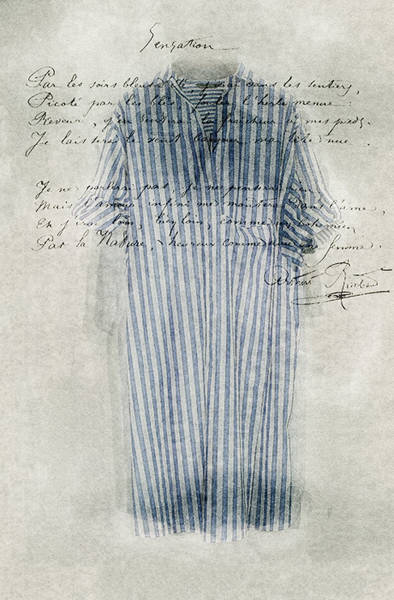 Sensation
Par les soirs bleus d'été j'irai dans les sentiers,
Picoté par les blés, fouler l'herbe menue:
Rêveur, j'en sentirai la fraîcheur à mes pieds.
Je laisserai le vent baigner ma tête nue.
Je ne parlerai pas, je ne penserai rien,
Mais l'amour infini me montera dans l'âme,
Et j'irai loin, bien loin, comme un bohémien,
Par la Nature, heureux comme avec une femme.
Arthur Rimbaud